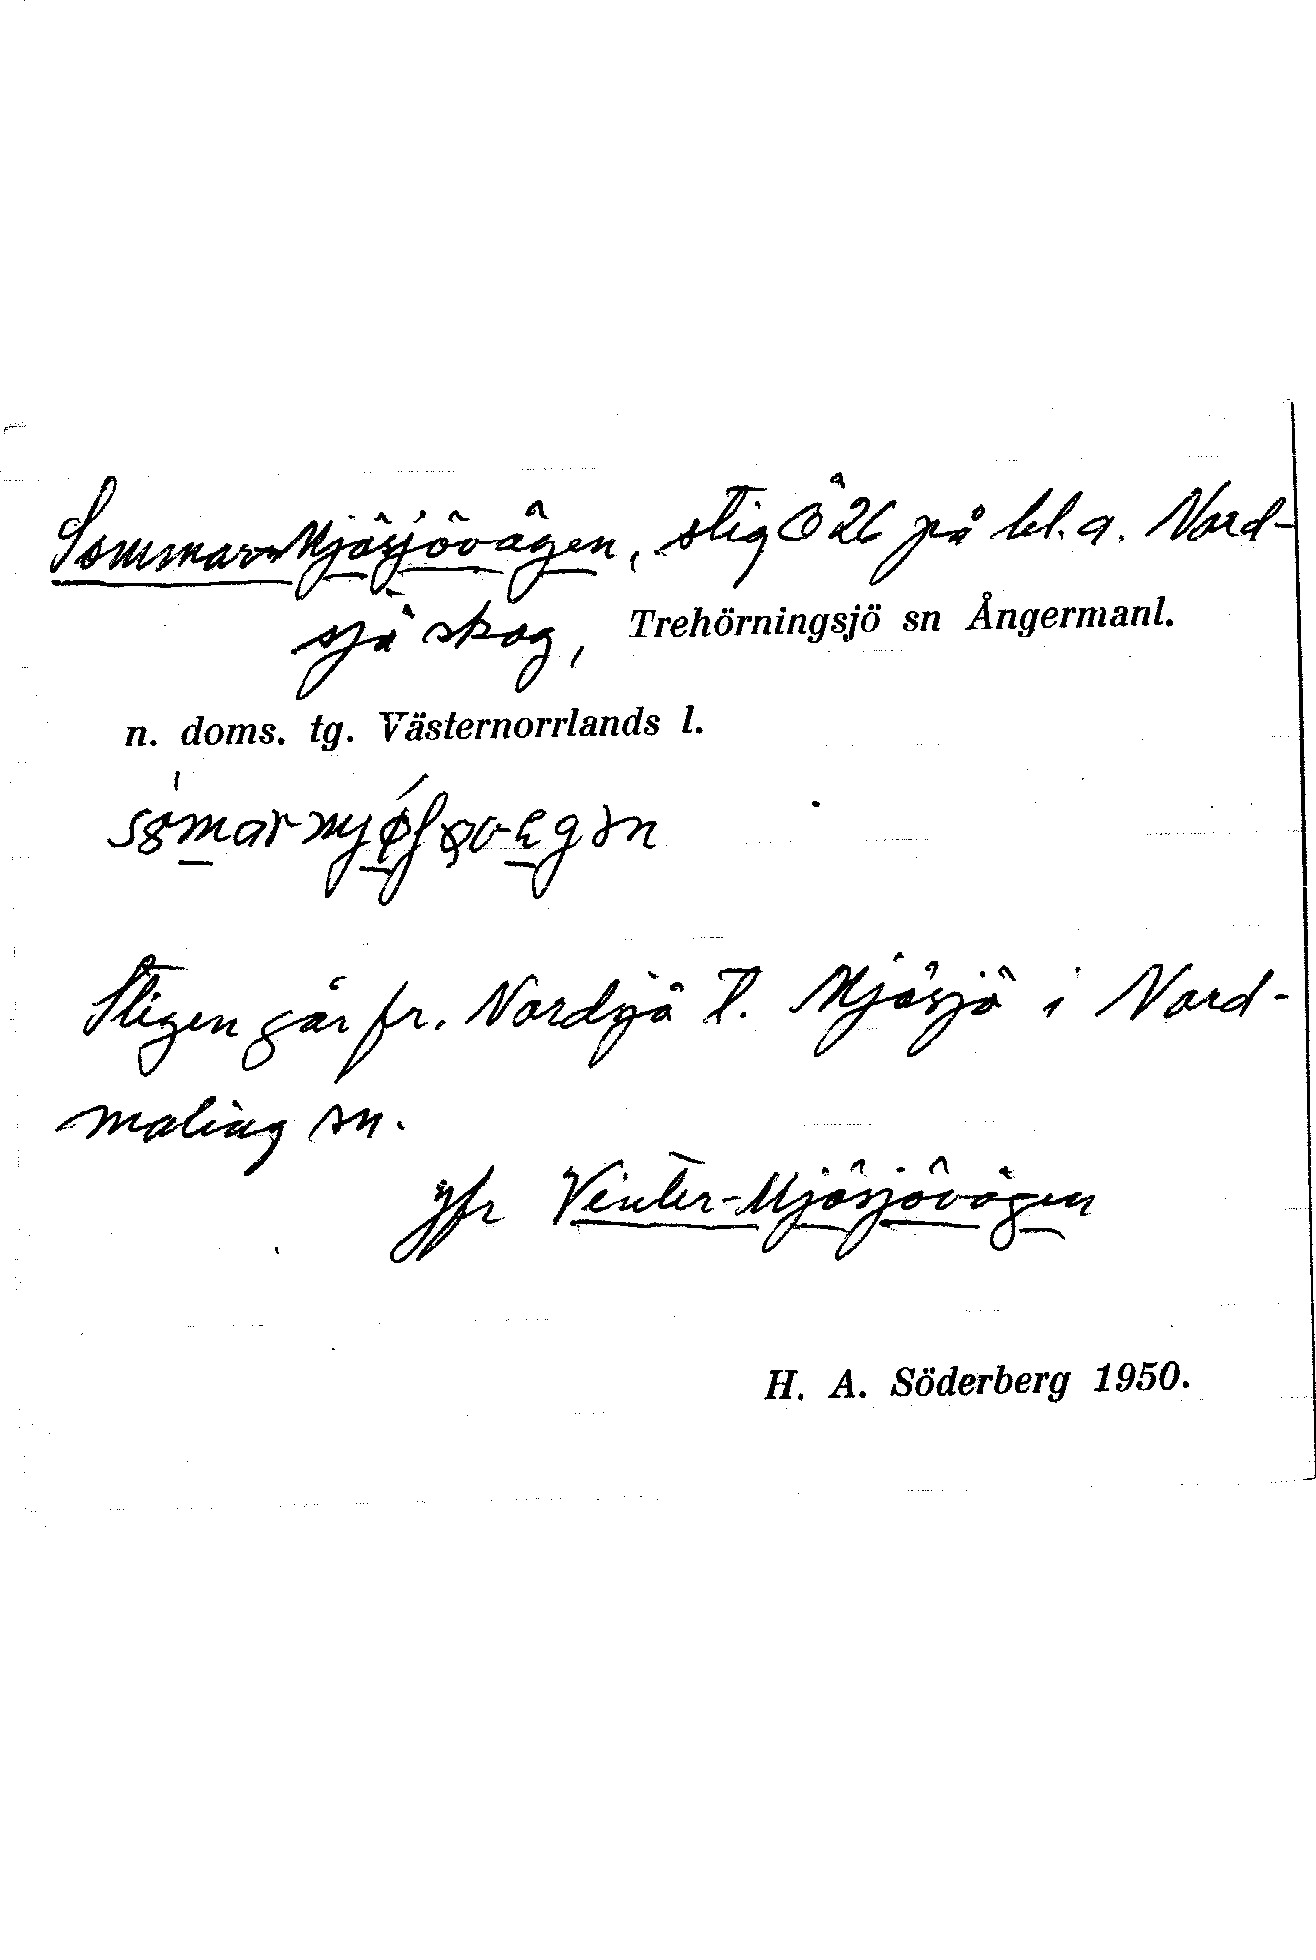 Sommar-Mjösjövägen, stig Ö 26 på bl.a. Nord-
sjö skog, Trehörningsjö sn Ångermanl.
n. doms. tg. Västernorrlands l.
Stigen går fr. Nordsjö t. Mjösjö i Nord-
maling sn.
jfr Vinter-Mjösjövägen
H. A. Söderberg 1950.